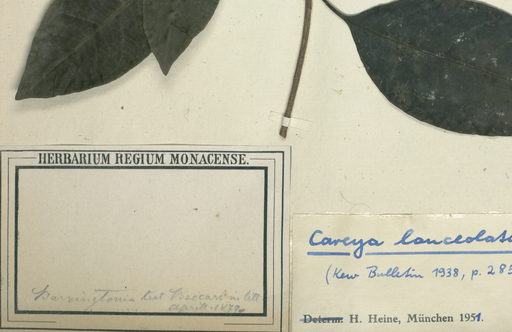 HERBARIUM REGIUM MONACENSE.
Barringtonia test Beccari in litt.
April 1879.
Careya lanceolata
(Kew Bulletin 1938, p. 285
Determ. H. Heine, München 1951.